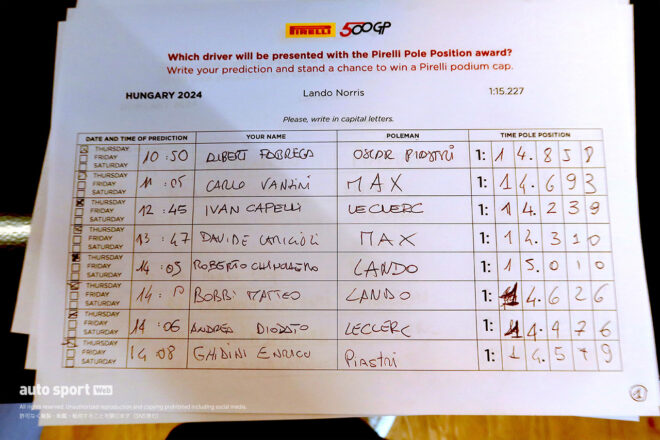 PIRELLI 500GP
Which driver will be presented with the Pirelli Pole Position award?
Write your prediction and stand a chance to win a Pirelli podium cap.
HUNGARY 2024 Lando Norris 1:15.227
Please, write in capital letters.
DATE AND TIME OF PREDICTION YOUR NAME POLEMAN TIME POLE POSITION
THURSDAY
FRIDAY 10:50 ALBERT FABREGA OSCAR PIASTRI 1: 14.858
SATURDAY
THURSDAY
FRIDAY 11:05 CARLO VANZINI MAX 1: 14.693
SATURDAY
THURSDAY
FRIDAY 12:45 IVAN CAPELLI LECLERC 1: 14.239
SATURDAY
THURSDAY
FRIDAY 13:47 DAVIDE MAX 1: 14.310
SATURDAY
THURSDAY
FRIDAY 14:05 ROBERTO LANDO 1: 15.010
SATURDAY
THURSDAY
FRIDAY 14: BOBBI MATTEO LANDO 1: 14.626
SATURDAY
THURSDAY
FRIDAY 14:06 ANDREA DIODATO LECLERC 1: 14.476
SATURDAY
THURSDAY
FRIDAY 14:08 GHIDINI ENRICO PIASTRI 1: 14.579
SATURDAY
1
auto sport Web
All rights reserved. Unauthorized reproduction and copying prohibited including social media.